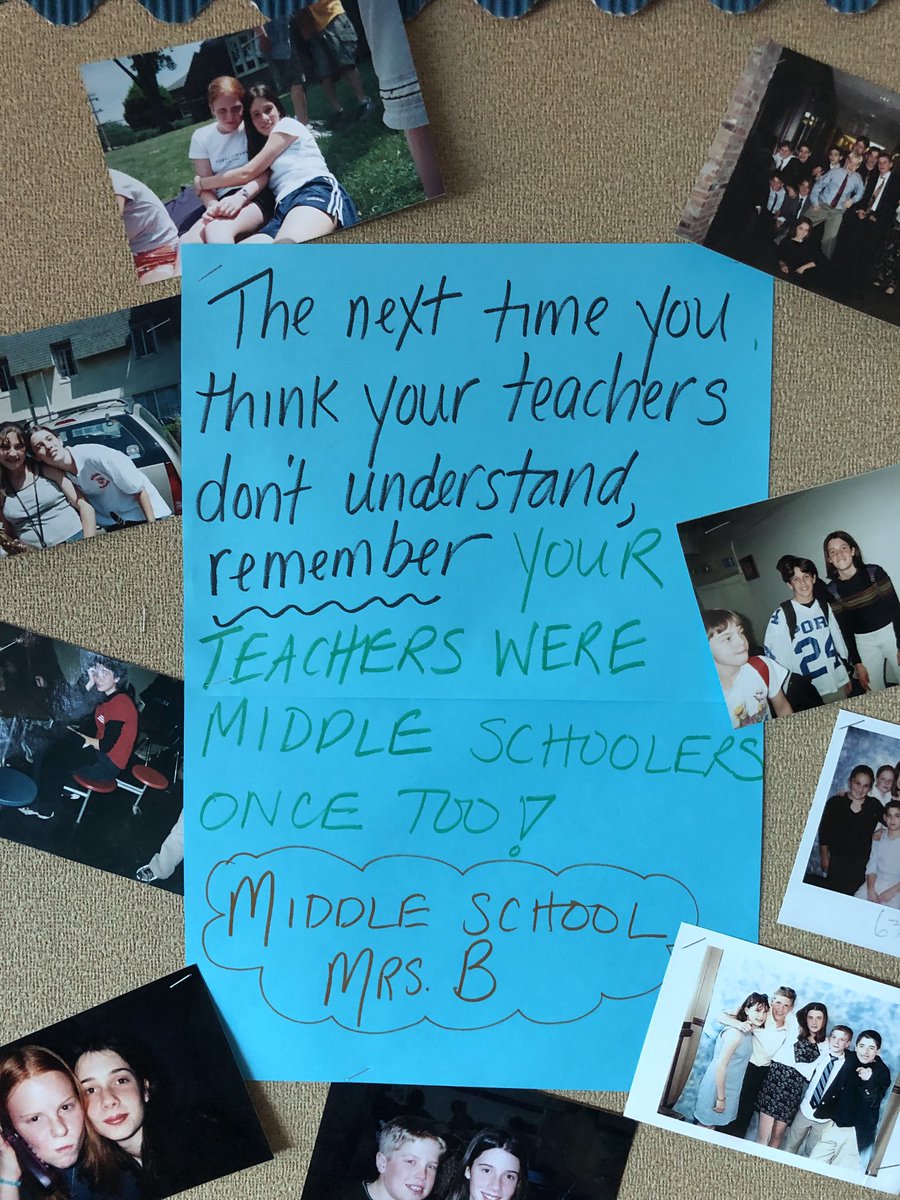 The next time you
think your teachers
don't understand,
remember YOUR
TEACHERS WERE
MIDDLE SCHOOLERS
ONCE TOO!
MIDDLE SCHOOL
MRS. B
24